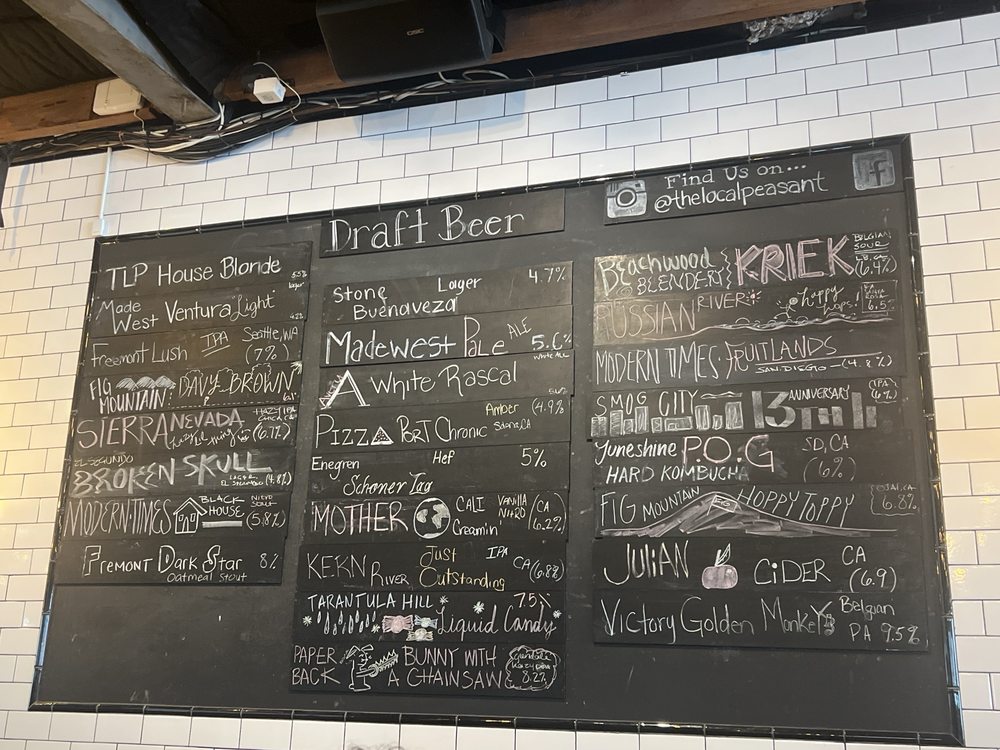 QSC
Find Us on...
@thelocalpeasant
f
Draft Beer
TLP House Blonde 5.5%
lager
Made West Ventura "Light"
4.2%
Freemont Lush IPA Seattle, WA
(7%)
FIG MOUNTAIN: DAVY BROWN
SIERRA NEVADA HAZY IPA
(6.7%)
EL SEGUNDO
BROKEN SKULL
LAGER EL SEGUNDO (4.8%)
MODERN TIMES BLACK HOUSE Nitro Stout
(5.8%)
Fremont Dark Star 8%
Oatmeal Stout
Stone Lager 4.7%
Buenaveza
Madewest Pale ALE 5.6%
White Rascal
PIZZA PORT Chronic Amber (4.9%)
Enegren Hef 5%
Schoner Tag
MOTHER CALI Creamin' Vanilla Nitro (CA) (6.2%)
KERN River Just Outstanding IPA CA (6.8%)
TARANTULA HILL 7.5%
Liquid Candy
PAPER BACK BUNNY WITH A CHAINSAW
8.2%
Beachwood BLENDERY KRIEK BELGIAN SOUR
(6.4%)
RUSSIAN RIVER happy hops
6.5%
MODERN TIMES: FRUITLANDS
SAN DIEGO (4.8%)
SMOG CITY 13 ANNIVERSARY (IPA)
(6%)
Juneshine P.O.G SD, CA
HARD KOMBUCHA (6%)
FIG MOUNTAIN HOPPY POPPY
6.8%
JULIAN CiDER CA
(6.9)
Victory Golden Monkey Belgian
PA 9.5%